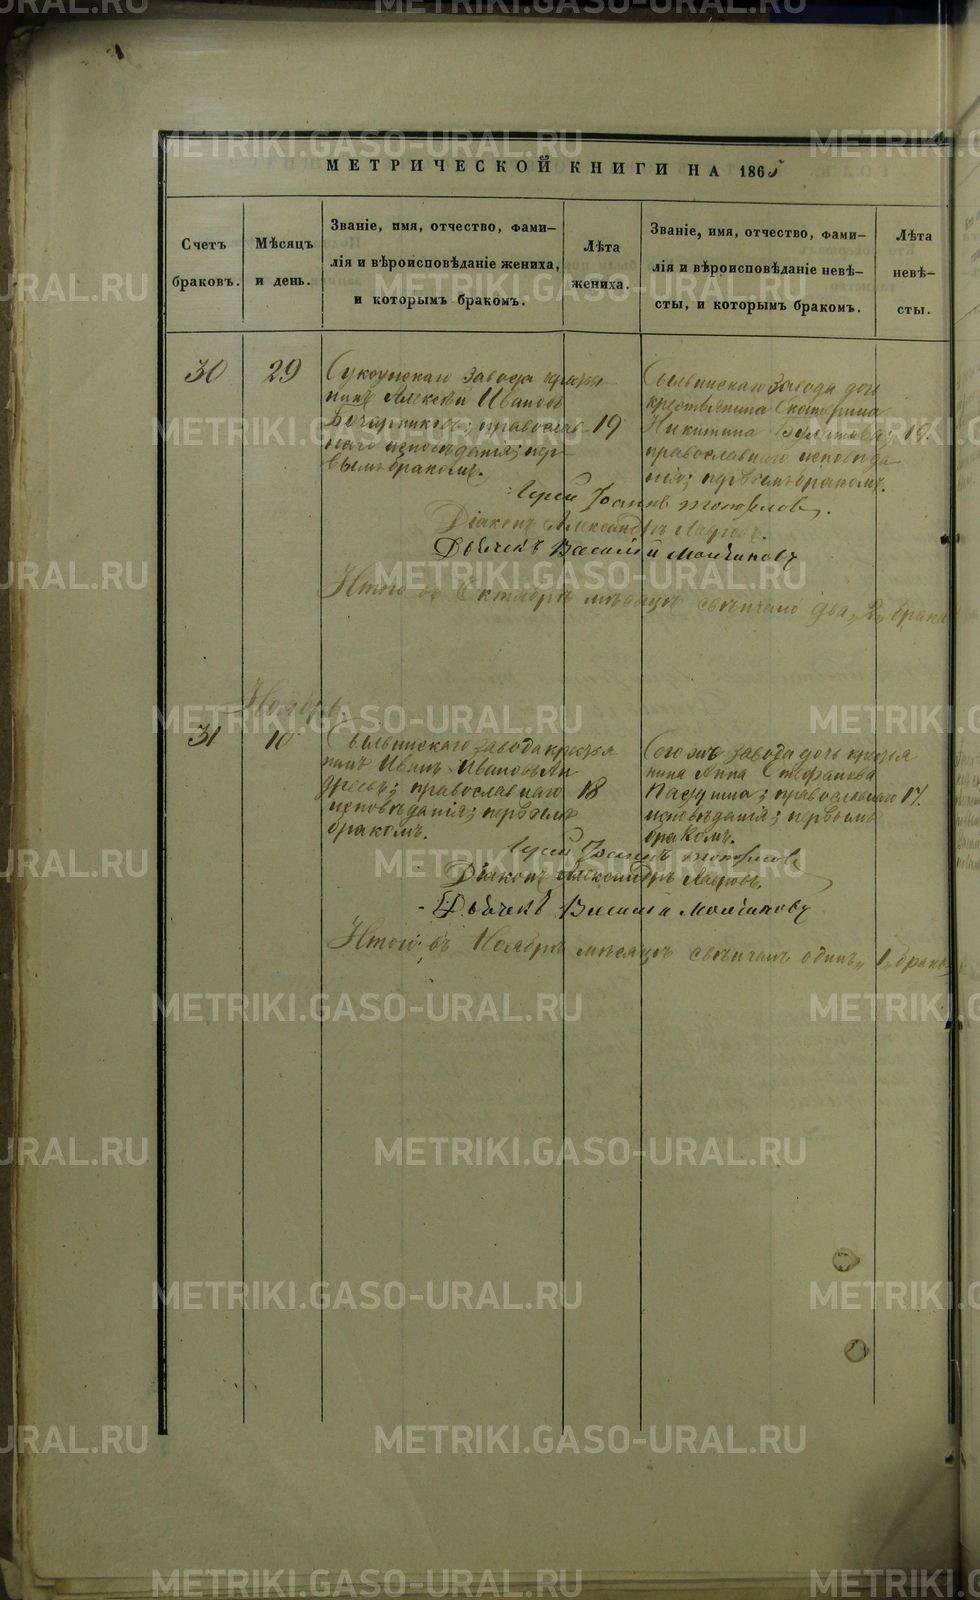 METRIKI.GASO-URAL.RU
МЕТРИЧЕСКОЙ КНИГИ НА 1865
Счетъ браковъ.
Мѣсяцъ и день.
Званіе, имя, отчество, фами-
лія и вѣроисповѣданіе жениха,
и которымъ бракомъ.
Лѣта жениха.
Званіе, имя, отчество, фами-
лія и вѣроисповѣданіе невѣ-
сты, и которымъ бракомъ.
Лѣта невѣ-
сты.
30
29
Суксунскаго завода крестья
нинъ Алексѣй Ивановъ
православ
наго исповѣданія; пер-
вымъ бракомъ.
19
Сылвинскаго завода дочь
крестьянина Екатерина
Никитина
православнаго исповѣда
нія; первымъ бракомъ.
19.
Іерей Іоаннъ
Діаконъ Александръ
Дьячекъ Василій Молчановъ
Итого въ Октябрѣ мѣсяцѣ свѣнчано два, 2, брака
Ноябрь.
31
10
Сылвинскаго завода крестья
нинъ Иванъ Ивановъ Ан
дреевъ; православнаго
исповѣданія; первымъ
бракомъ.
18
Того жъ завода дочь крестья
нина Анна Стефанова
православнаго
исповѣданія; первымъ
бракомъ.
17.
Іерей Іоаннъ
Діаконъ Александръ
Дьячекъ Василій Молчановъ
Итого въ Ноябрѣ мѣсяцѣ свѣнчанъ одинъ, 1, бракъ